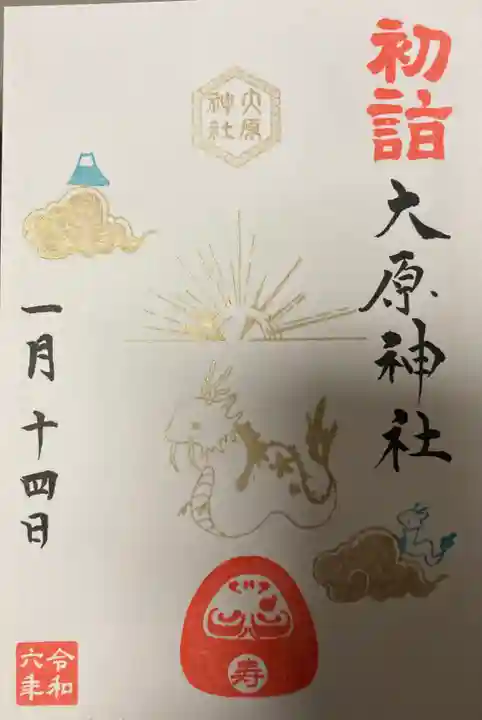 初詣
大原神社
大原
神社
寿
一月十四日
令和
六年